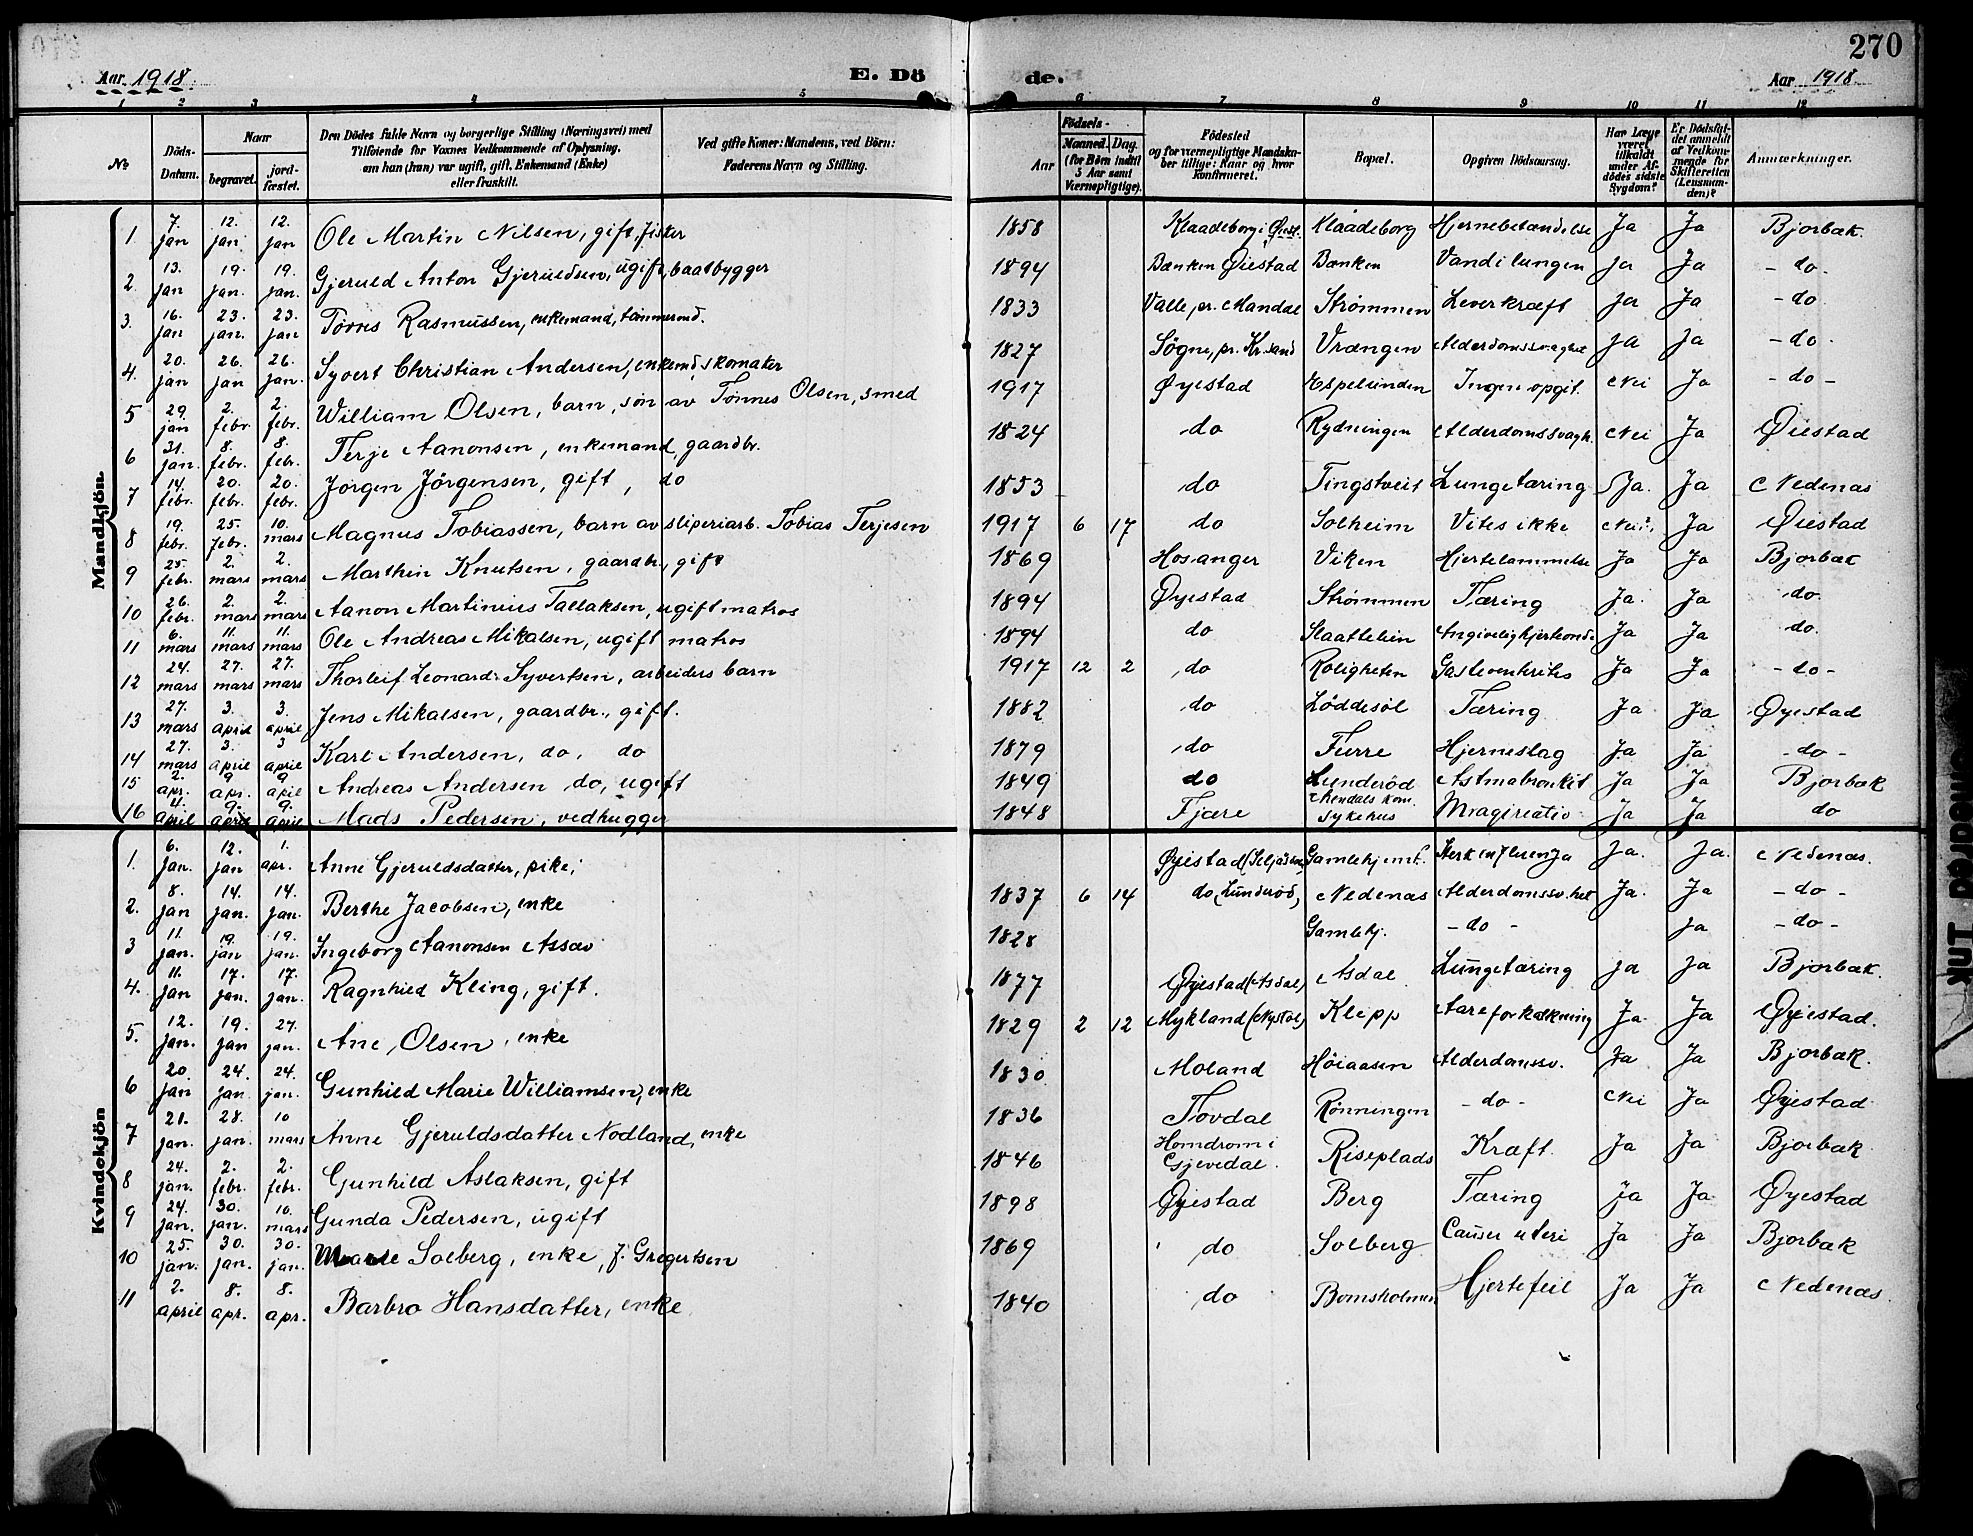 270
Aar 1918. E. Dö de. Aar 1918
1 2 3 4 5 6 7 8 9 10 11 12
No Döds-Datum. Naar begravet. jord-fæstet. Den Dödes fulde Navn og borgerlige Stilling (Næringsvei) med Tilföiende for Voxnes Vedkommende af Oplysning, om han (hun) var ugift, gift, Enkemand (Enke) eller fraskilt. Ved gifte Koner: Mandens, ved Börn: Faderens Navn og Stilling. Aar Födsels- Maaned. Dag. (for Börn indtil 5 Aar samt Værnepligtige). Födested og for værnepligtige Mandskaber tillige: Naar og hvor Konfirmeret. Bopæl. Opgiven Dödsaarsag. Har Læge været tilkaldt under Afdödes sidste Sygdom? Er Dödsfaldet anmeldt af Vedkommende for Skifteretten (Lensmanden)? Anmærkninger.
Mandkjön.
1. 7. jan 12. jan 12. jan Ole Martin Nilsen, gift, fisker 1858 Klaadeborg i Øiest. Klaadeborg Hjernebetændelse Ja Ja Bjorbæk.
2. 13. jan 19. jan. 19. jan. Gjeruld Anton Gjeruldsen, ugift, baatbygger 1894 Bænken Øiestad Bænken Vand i lungen Ja Ja - do -
3. 16. jan 23. jan. 23. jan Tørres Rasmussen, enkemand, tømmermd. 1833 Valle, pr. Mandal Strømmen Leverkræft Ja Ja - do
4. 20. jan 26. jan 26. jan. Syvert Christian Andersen, enkemd, skomaker 1827 Søgne, pr. Kr.sand Vrængen Alderdomssvaghet Ja Ja - do -
5 29. jan 2. febr 2. febr. William Olsen, barn, søn av Tønnes Olsen, smed 1917 Øyestad Espelunden Ingen opgit. Nei Ja - do -
6 31. jan. 8. febr. 8. febr. Terje Aanonsen, enkemand, gaardbr. 1824 do Rydningen Alderdomssvagh. Nei Ja Øiestad
7 14. febr. 20. febr. 20. febr. Jørgen Jörgensen, gift, do 1853 do Tingstveit Lungetæring Ja. Ja Nedenæs
8 19. febr. 25. febr. 10. mars Magnus Tobiassen, barn av sliperiarb. Tobias Terjesen 1917 6 17 do Solheim Vites ikke Nei Ja Øiestad
9 25. febr. 2. mars 2. mars Marthin Knutsen, gaardbr., gift 1869 Hosanger Viken Hjertelammelse Ja Ja Bjorbæk
10 26. febr. 2. mars 2. mars Aanon Martinius Tallaksen, ugift matros 1894 Øyestad Strømmen Tæring Ja. Ja do
11 6. mars 11. mars 11. mars Ole Andreas Mikalsen, ugift matros 1894 do Slaattelien Angivelig hjerteonde Ja Ja do.
12 24. mars 27. mars 27. mars Thorleif Leonard Syvertsen, arbeiders barn 1917 12 2 do Roligheten Ja Ja - do -
13 27. mars 3. april 3. april Jens Mikalsen, gaardbr., gift. 1882 do Løddesøl Tæring Ja Ja Øyestad
14 27. mars 3. april 3 april Karl Andersen, do, do 1879 do Furre Hjerneslag Ja Ja - do -
15 2. apr. 9 apr. 9 april Andreas Andersen do, ugift 1849 do Lunderöd Astmabronkit Ja Ja Bjorbæk
16 4. april 9. april 9. april Mads Pedersen, vedhugger 1848 Fjære Arendals kom. sykehus Ja Ja do
Kvindekjön
1. 6. jan. 12. jan 1. apr. Anne Gjeruldsdatter, pike, Øyestad Gamlehjemt. Ja. Ja. Nedenæs.
2. 8. jan 14. jan. 14. jan. Berthe Jacobsen, enke 1837 6 14 do, Lunderöd, Nedenæs Alderdomssv.het Ja. Ja - do -
3 11. jan. 19. jan 19. jan. Ingeborg Aanonsen Assæv 1828 Gamlehj. - do - Ja - do -
4. 11. jan 17. jan. 17. jan. Ragnhild Kling, gift. 1877 Øyestad (Asdal) Asdal Lungetæring Ja Ja Bjorbæk.
5. 12. jan. 19. jan 27. jan. Ane Olsen, enke 1829 2 12 Mykland Klepp Aareforkalkning Ja. Ja Øyestad.
6 20. jan 24. jan 24. jan. Gunhild Marie Williamsen, enke 1830 Moland Høiaasen Alderdomssv. Ja Ja Bjorbæk.
7 21. jan. 28. jan. 10 mars Anne Gjeruldsdatter Nodland, enke 1836 Tovdal Rønningen - do - Nei Ja Øyestad
8 24. jan. 2. febr. 2. febr. Gunhild Aslaksen, gift 1846 Homdrom i Gjevedal. Riseplads Kræft. Ja Ja Bjorbæk
9 24. jan. 30. jan. 10. mars Gunda Pedersen, ugift 1898 Øyestad Berg Tæring Ja Ja Øyestad
10 25. jan. 30. jan. 30. jan. Marie Solberg, enke, f. Gregertsen 1869 do Solberg Cancer uteri Ja Ja Bjorbæk
11 2. april 8. apr. 8. apr. Barbro Hansdatter, enke 1840 do Bomsholmen Hjertefeil Ja Ja Nedenæs